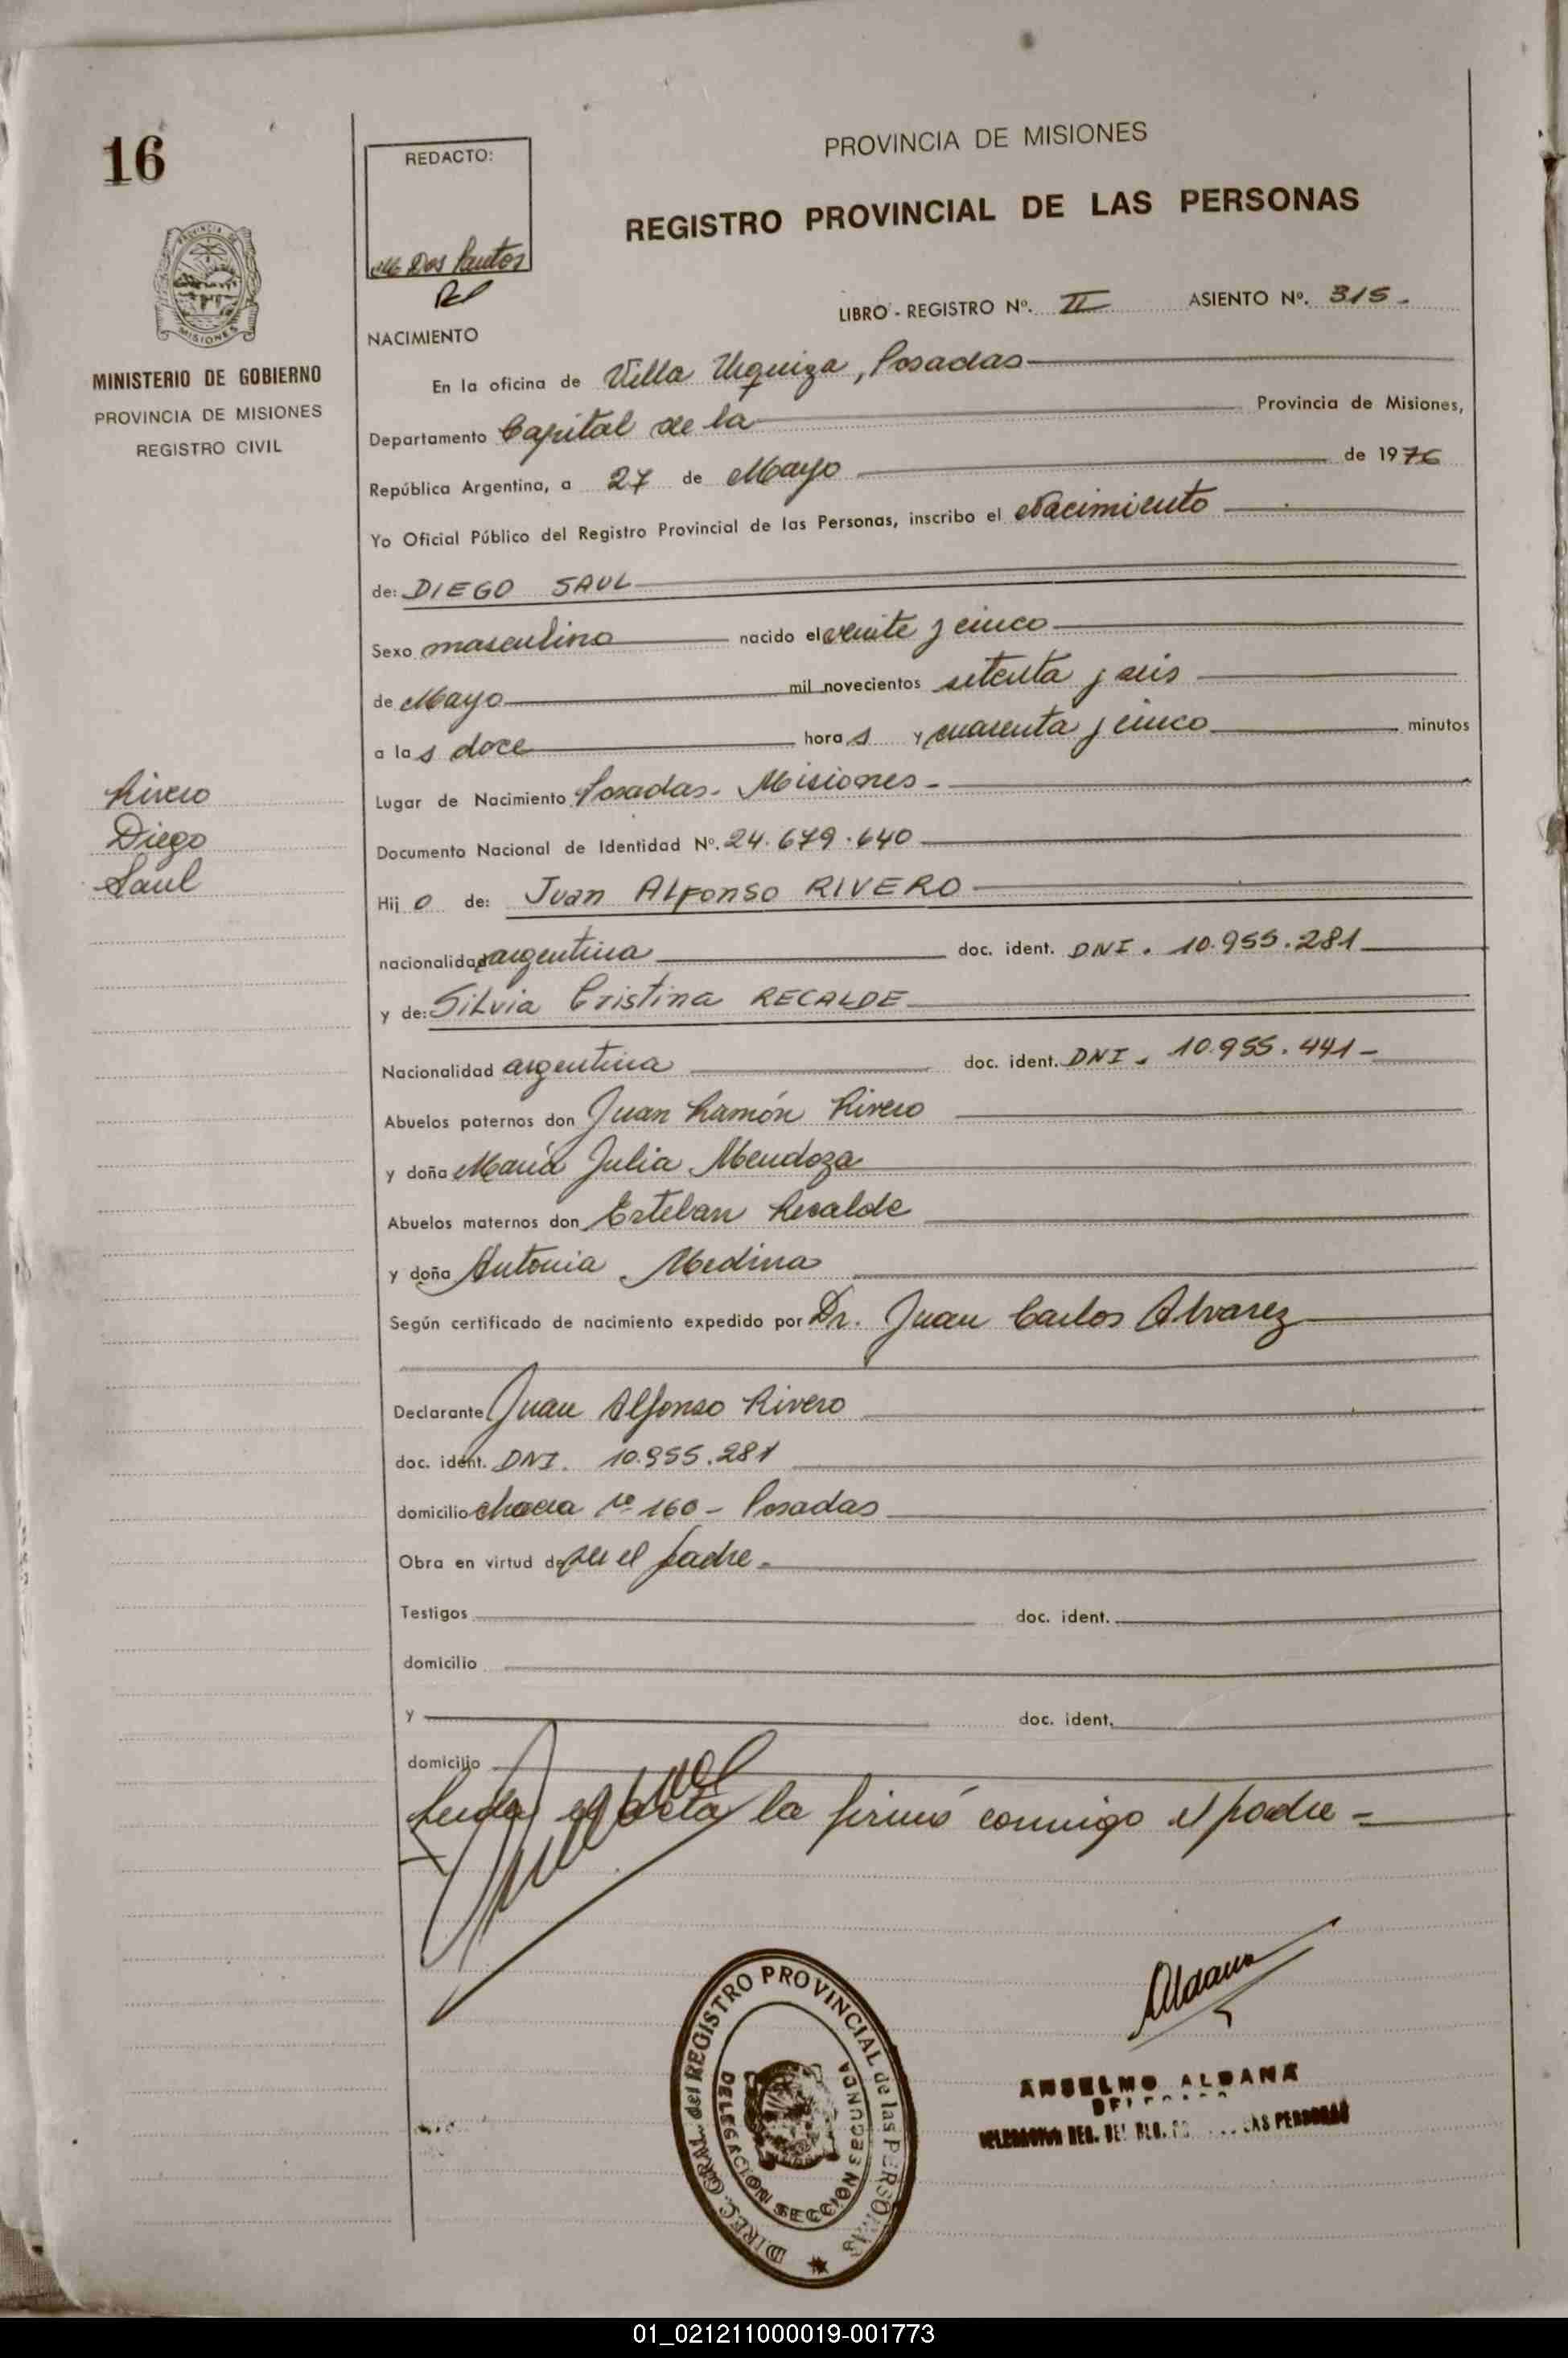 16
REDACTO:
M. Dos Santos
PROVINCIA DE MISIONES
REGISTRO PROVINCIAL DE LAS PERSONAS
LIBRO - REGISTRO Nº. II ASIENTO Nº. 315 -
MISIONES
MINISTERIO DE GOBIERNO
PROVINCIA DE MISIONES
REGISTRO CIVIL
NACIMIENTO
En la oficina de Villa Urquiza, Posadas
Departamento Capital de la Provincia de Misiones,
República Argentina, a 27 de Mayo de 1976
Yo Oficial Público del Registro Provincial de las Personas, inscribo el Nacimiento
de: DIEGO SAUL
Sexo masculino nacido el veinte y cinco
de Mayo mil novecientos setenta y seis
a las doce horas y cuarenta y cinco minutos
Rivero
Diego
Saul
Lugar de Nacimiento Posadas - Misiones -
Documento Nacional de Identidad Nº. 24.679.640
Hijo de: Juan Alfonso RIVERO
nacionalidad argentina doc. ident. DNI. 10.955.281
y de: Silvia Cristina RECALDE
Nacionalidad argentina doc. ident. DNI. 10.955.441 -
Abuelos paternos don Juan Ramón Rivero
y doña María Julia Mendoza
Abuelos maternos don Esteban Recalde
y doña Antonia Medina
Según certificado de nacimiento expedido por Dr. Juan Carlos Alvarez
Declarante Juan Alfonso Rivero
doc. ident. DNI. 10.955.281
domicilio chacra nº 160 - Posadas
Obra en virtud de ser el padre -
Testigos doc. ident.
domicilio
y doc. ident.
domicilio
Leida el acta la firmó conmigo el padre =
Aldana
DIREC. GRAL. del REGISTRO PROVINCIAL de las PERSONAS
DELEGACION SECCION SEGUNDA
ANSELMO ALDANA
01_021211000019-001773